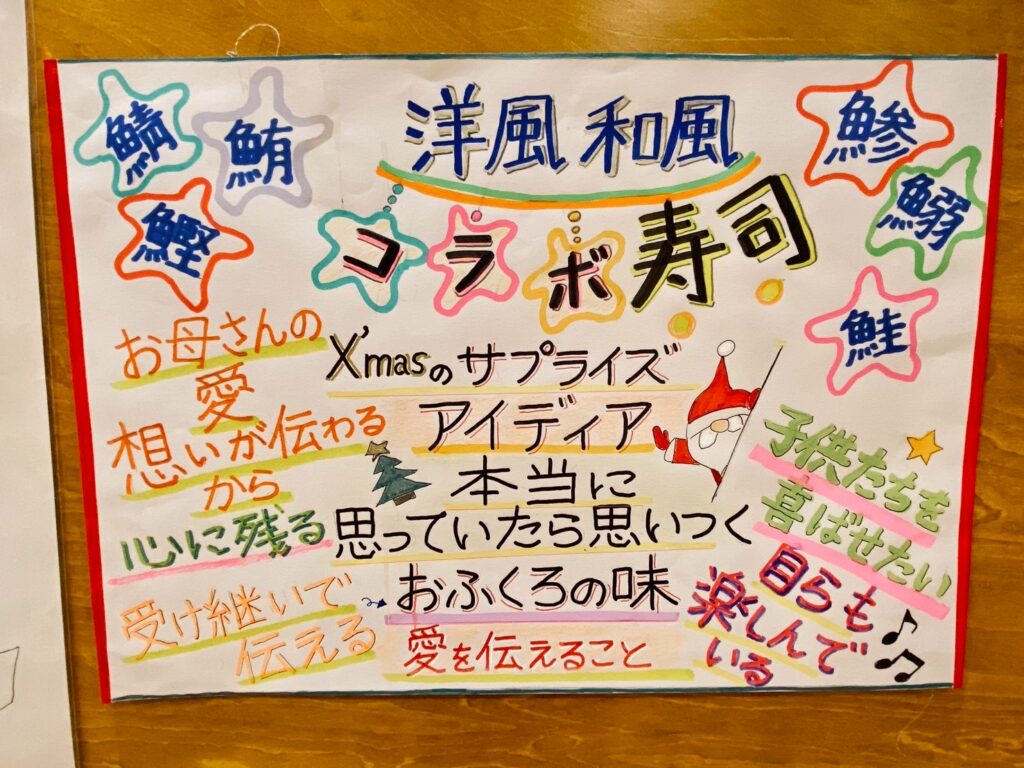 洋風和風
コラボ寿司
鯖
鮪
鰹
鯵
鰯
鮭
お母さんの
愛
想いが伝わる
から
心に残る
受け継いで
伝える
X'masのサプライズ
アイディア
本当に
思っていたら思いつく
おふくろの味
愛を伝えること
子供たちを
喜ばせたい
自らも
楽しんで
いる